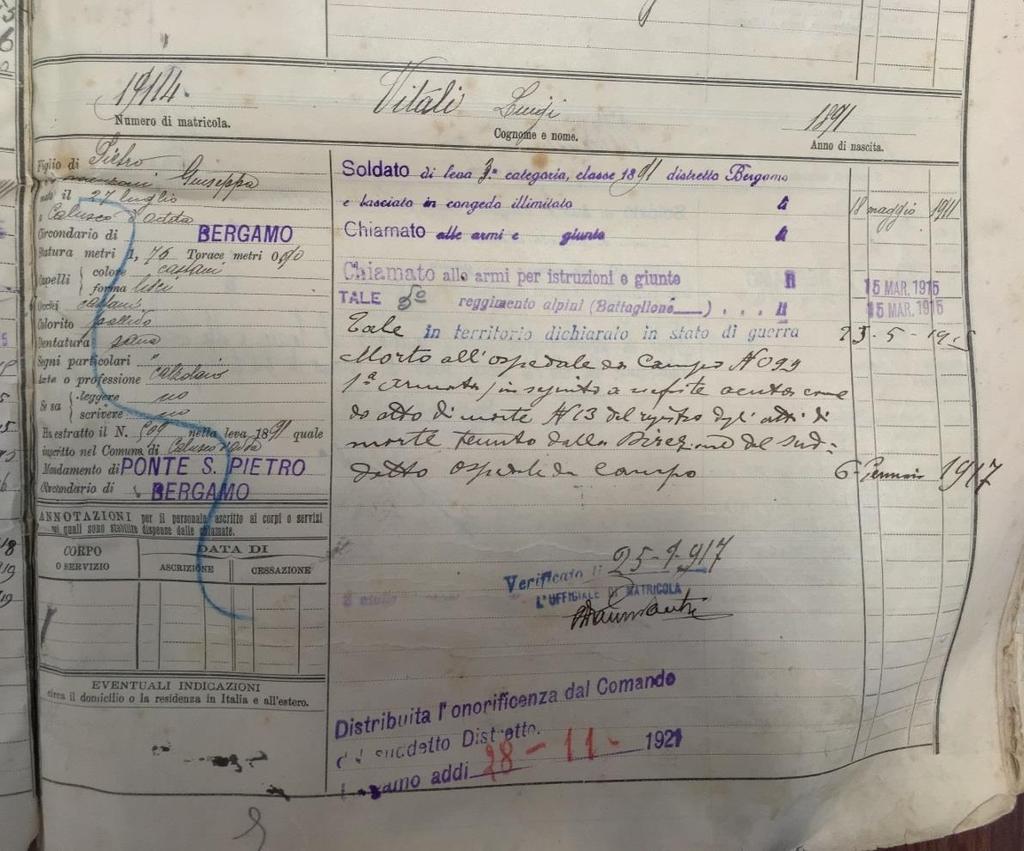 19114.
Vitali Luigi
1891
Numero di matricola.
Cognome e nome.
Anno di nascita.
Figlio di Pietro
Giuseppa
nato il 27 luglio
a Calusco d'adda
Circondario di BERGAMO
Statura metri 1, 76 Torace metri 0,90
Capelli colore castani
forma lisci
Occhi castani
Colorito pallido
Dentatura sana
Segni particolari "
Arte o professione calzolaio
Se sa leggere no
scrivere no
Ha estratto il N. 509 nella leva 1891 quale
inscritto nel Comune di Calusco d'adda
Mandamento di PONTE S. PIETRO
Circondario di BERGAMO
ANNOTAZIONI per il personale ascritto ai corpi o servizi
pei quali sono stabilite dispense dalle chiamate.
CORPO
O SERVIZIO
DATA DI
ASCRIZIONE
CESSAZIONE
EVENTUALI INDICAZIONI
circa il domicilio o la residenza in Italia e all'estero.
Soldato di leva 3a categoria, classe 1891 distretto Bergamo
e lasciato in congedo illimitato lì 18 maggio 1911
Chiamato alle armi e giunto lì
Chiamato alle armi per istruzioni e giunte lì 15 MAR. 1915
TALE 5° reggimento alpini (Battaglione) . . . lì 15 MAR. 1915
Tale in territorio dichiarato in stato di guerra 23-5-1915
Morto all'ospedale da Campo N 099
1a armata in seguito a nefrite acuta come
da atto di morte N 13 del registro degli atti di
morte tenuto dalla Direzione del sud-
detto ospedale da campo 6 Gennaio 1917
Verificato lì 25-1-917
L'UFFICIALE DI MATRICOLA
Distribuita l'onorificenza dal Comando
del suddetto Distretto.
Bergamo addì 28-11- 1921